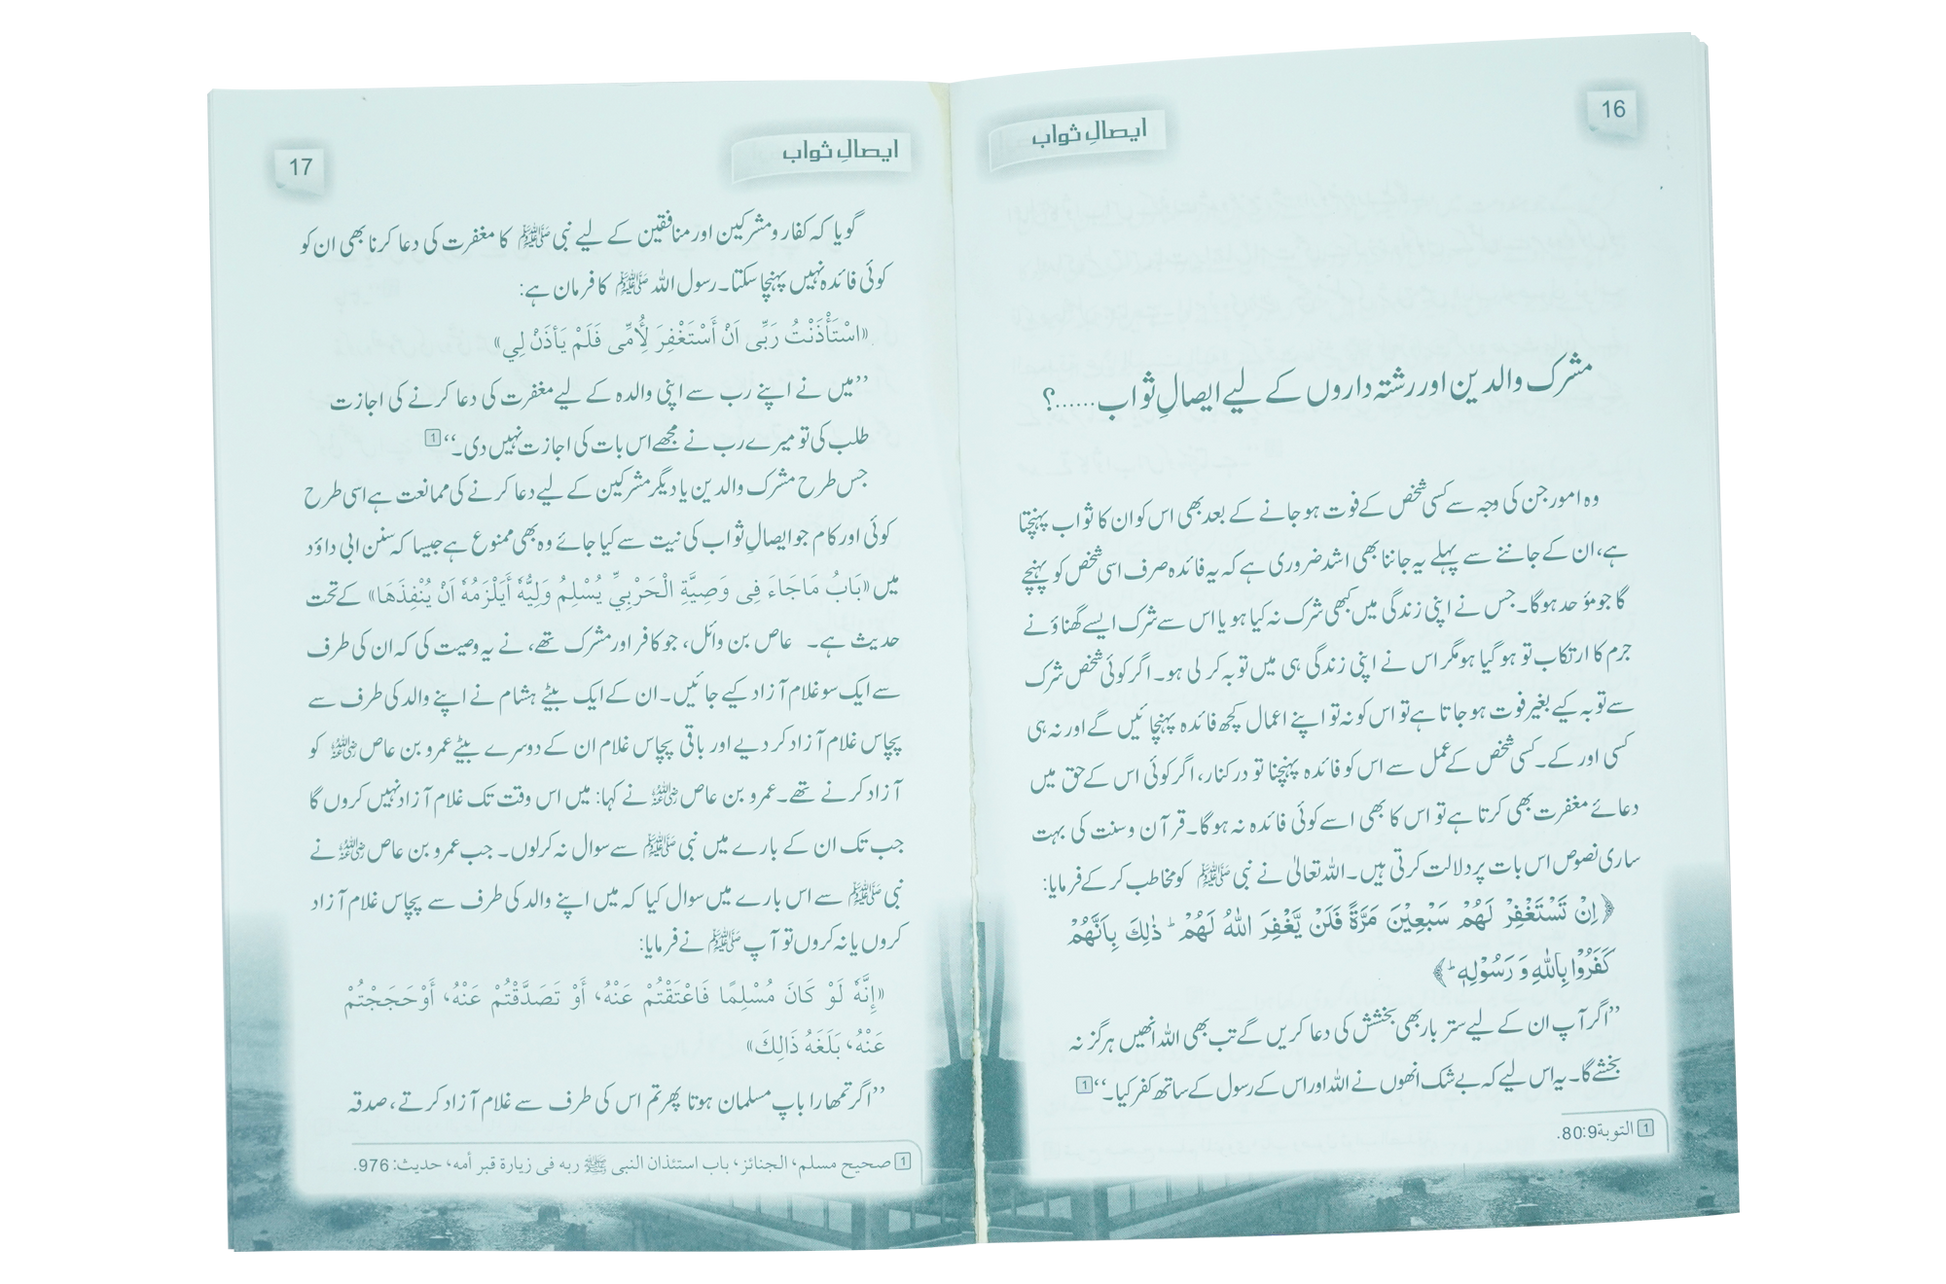 16
ایصالِ ثواب
مشرک والدین اور رشتہ داروں کے لیے ایصالِ ثواب......؟
وہ امور جن کی وجہ سے کسی شخص کے فوت ہو جانے کے بعد بھی اس کو ان کا ثواب پہنچتا
ہے، ان کے جاننے سے پہلے یہ جاننا بھی اشد ضروری ہے کہ یہ فائدہ صرف اسی شخص کو پہنچے
گا جو مؤحد ہوگا۔ جس نے اپنی زندگی میں کبھی شرک نہ کیا ہو یا اس سے شرک ایسے گھناؤنے
جرم کا ارتکاب تو ہو گیا ہو مگر اس نے اپنی زندگی ہی میں توبہ کر لی ہو۔ اگر کوئی شخص شرک
سے توبہ کیے بغیر فوت ہو جاتا ہے تو اس کو نہ تو اپنے اعمال کچھ فائدہ پہنچائیں گے اور نہ ہی
کسی اور کے۔ کسی شخص کے عمل سے اس کو فائدہ پہنچنا تو درکنار، اگر کوئی اس کے حق میں
دعائے مغفرت بھی کرتا ہے تو اس کا بھی اسے کوئی فائدہ نہ ہوگا۔ قرآن وسنت کی بہت
ساری نصوص اس بات پر دلالت کرتی ہیں۔ اللہ تعالیٰ نے نبی ﷺ کو مخاطب کر کے فرمایا:
﴿اِنْ تَسْتَغْفِرْ لَهُمْ سَبْعِيْنَ مَرَّةً فَلَنْ يَّغْفِرَ اللّٰهُ لَهُمْ ؕ ذٰلِكَ بِاَنَّهُمْ
كَفَرُوْا بِاللّٰهِ وَ رَسُوْلِهٖ ؕ﴾
’’اگر آپ ان کے لیے ستر بار بھی بخشش کی دعا کریں گے تب بھی اللہ انھیں ہرگز نہ
بخشے گا۔ یہ اس لیے کہ بے شک انھوں نے اللہ اور اس کے رسول کے ساتھ کفر کیا۔‘‘ 1
1 التوبة 80:9.
ایصالِ ثواب
17
گویا کہ کفار ومشرکین اور منافقین کے لیے نبی ﷺ کا مغفرت کی دعا کرنا بھی ان کو
کوئی فائدہ نہیں پہنچا سکتا۔ رسول اللہ ﷺ کا فرمان ہے:
«اسْتَأْذَنْتُ رَبِّى اَنْ أَسْتَغْفِرَ لِأُمِّى فَلَمْ يَأذَنْ لِي»
’’میں نے اپنے رب سے اپنی والدہ کے لیے مغفرت کی دعا کرنے کی اجازت
طلب کی تو میرے رب نے مجھے اس بات کی اجازت نہیں دی۔‘‘ 1
جس طرح مشرک والدین یا دیگر مشرکین کے لیے دعا کرنے کی ممانعت ہے اسی طرح
کوئی اور کام جو ایصالِ ثواب کی نیت سے کیا جائے وہ بھی ممنوع ہے جیسا کہ سنن ابی داؤد
میں «بَابُ مَاجَاءَ فِى وَصِيَّةِ الْحَرْبِيِّ يُسْلِمُ وَلِيُّهُ أَيَلْزَمُهُ اَنْ يُنْفِذَهَا» کے تحت
حدیث ہے۔ عاص بن وائل، جو کافر اور مشرک تھے، نے یہ وصیت کی کہ ان کی طرف
سے ایک سو غلام آزاد کیے جائیں۔ ان کے ایک بیٹے ہشام نے اپنے والد کی طرف سے
پچاس غلام آزاد کر دیے اور باقی پچاس غلام ان کے دوسرے بیٹے عمرو بن عاص رضی اللہ عنہ کو
آزاد کرنے تھے۔ عمرو بن عاص رضی اللہ عنہ نے کہا: میں اس وقت تک غلام آزاد نہیں کروں گا
جب تک ان کے بارے میں نبی ﷺ سے سوال نہ کرلوں۔ جب عمرو بن عاص رضی اللہ عنہ نے
نبی ﷺ سے اس بارے میں سوال کیا کہ میں اپنے والد کی طرف سے پچاس غلام آزاد
کروں یا نہ کروں تو آپ ﷺ نے فرمایا:
«إِنَّهُ لَوْ كَانَ مُسْلِمًا فَاعْتَقْتُمْ عَنْهُ، أَوْ تَصَدَّقْتُمْ عَنْهُ، أَوْحَجَجْتُمْ
عَنْهُ، بَلَغَهُ ذَالِكَ»
’’اگر تمھارا باپ مسلمان ہوتا پھر تم اس کی طرف سے غلام آزاد کرتے، صدقہ
1 صحيح مسلم، الجنائز، باب استئذان النبى ﷺ ربه فى زيارة قبر أمه، حديث: 976.